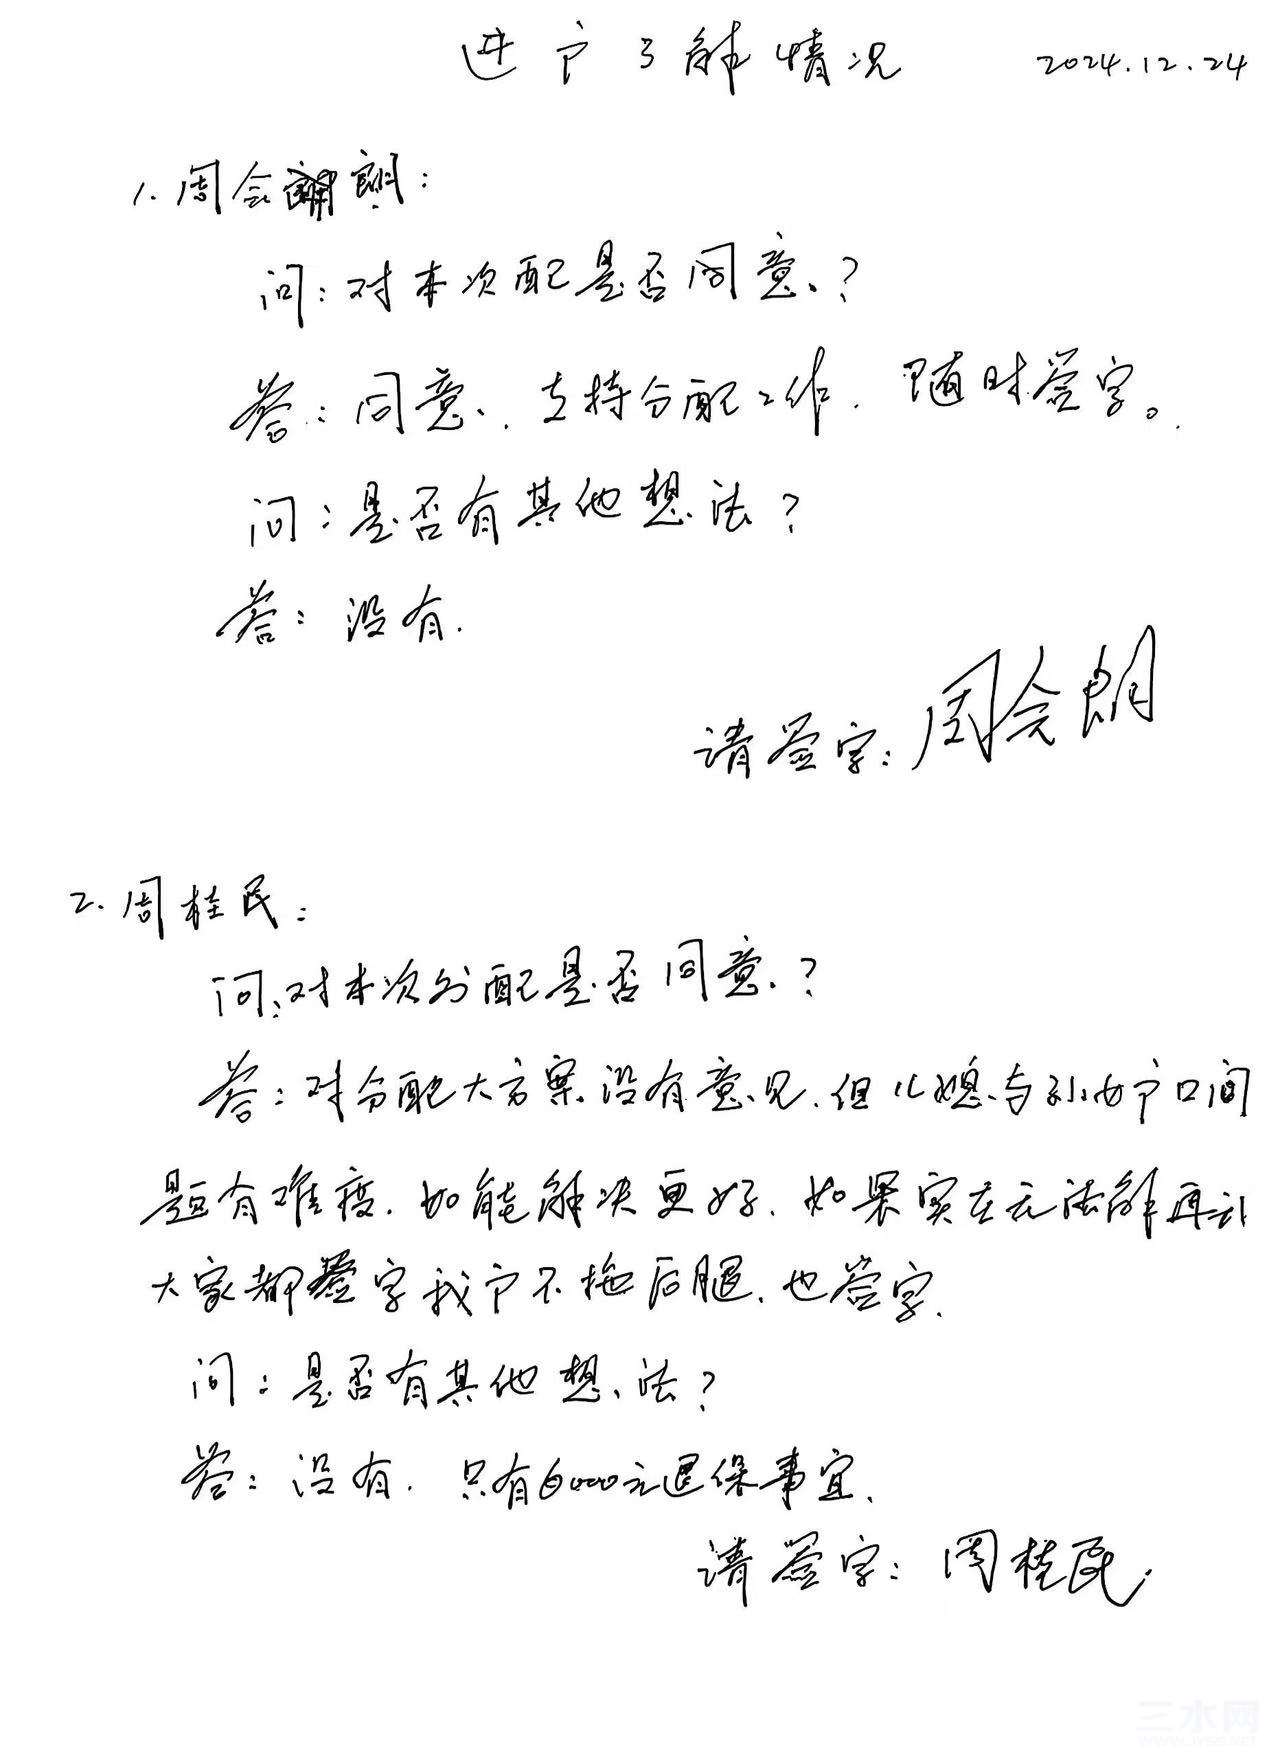 进户了解情况 2024.12.24
1. 周会朗:
问: 对本次配是否同意、?
答: 同意、. 支持分配工作. 随时签字。
问: 是否有其他想法?
答: 没有.
请签字: 周会朗
2. 周桂民:
问: 对本次分配是否同意、?
答: 对分配大方案没有意见. 但儿媳与孙女户口问
题有难度. 如能解决更好. 如果实在无法解再说
大家都签字我户不拖后腿. 也签字.
问: 是否有其他想法?
答: 没有. 只有6000元退保事宜.
请签字: 周桂民.
三水网
WWW.JYSS.NET